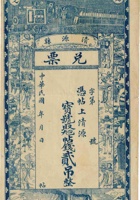 清源縣
兌票
字第 號
憑帖上清源
寶號錢貳吊整
中華民國 年 月 日 帖